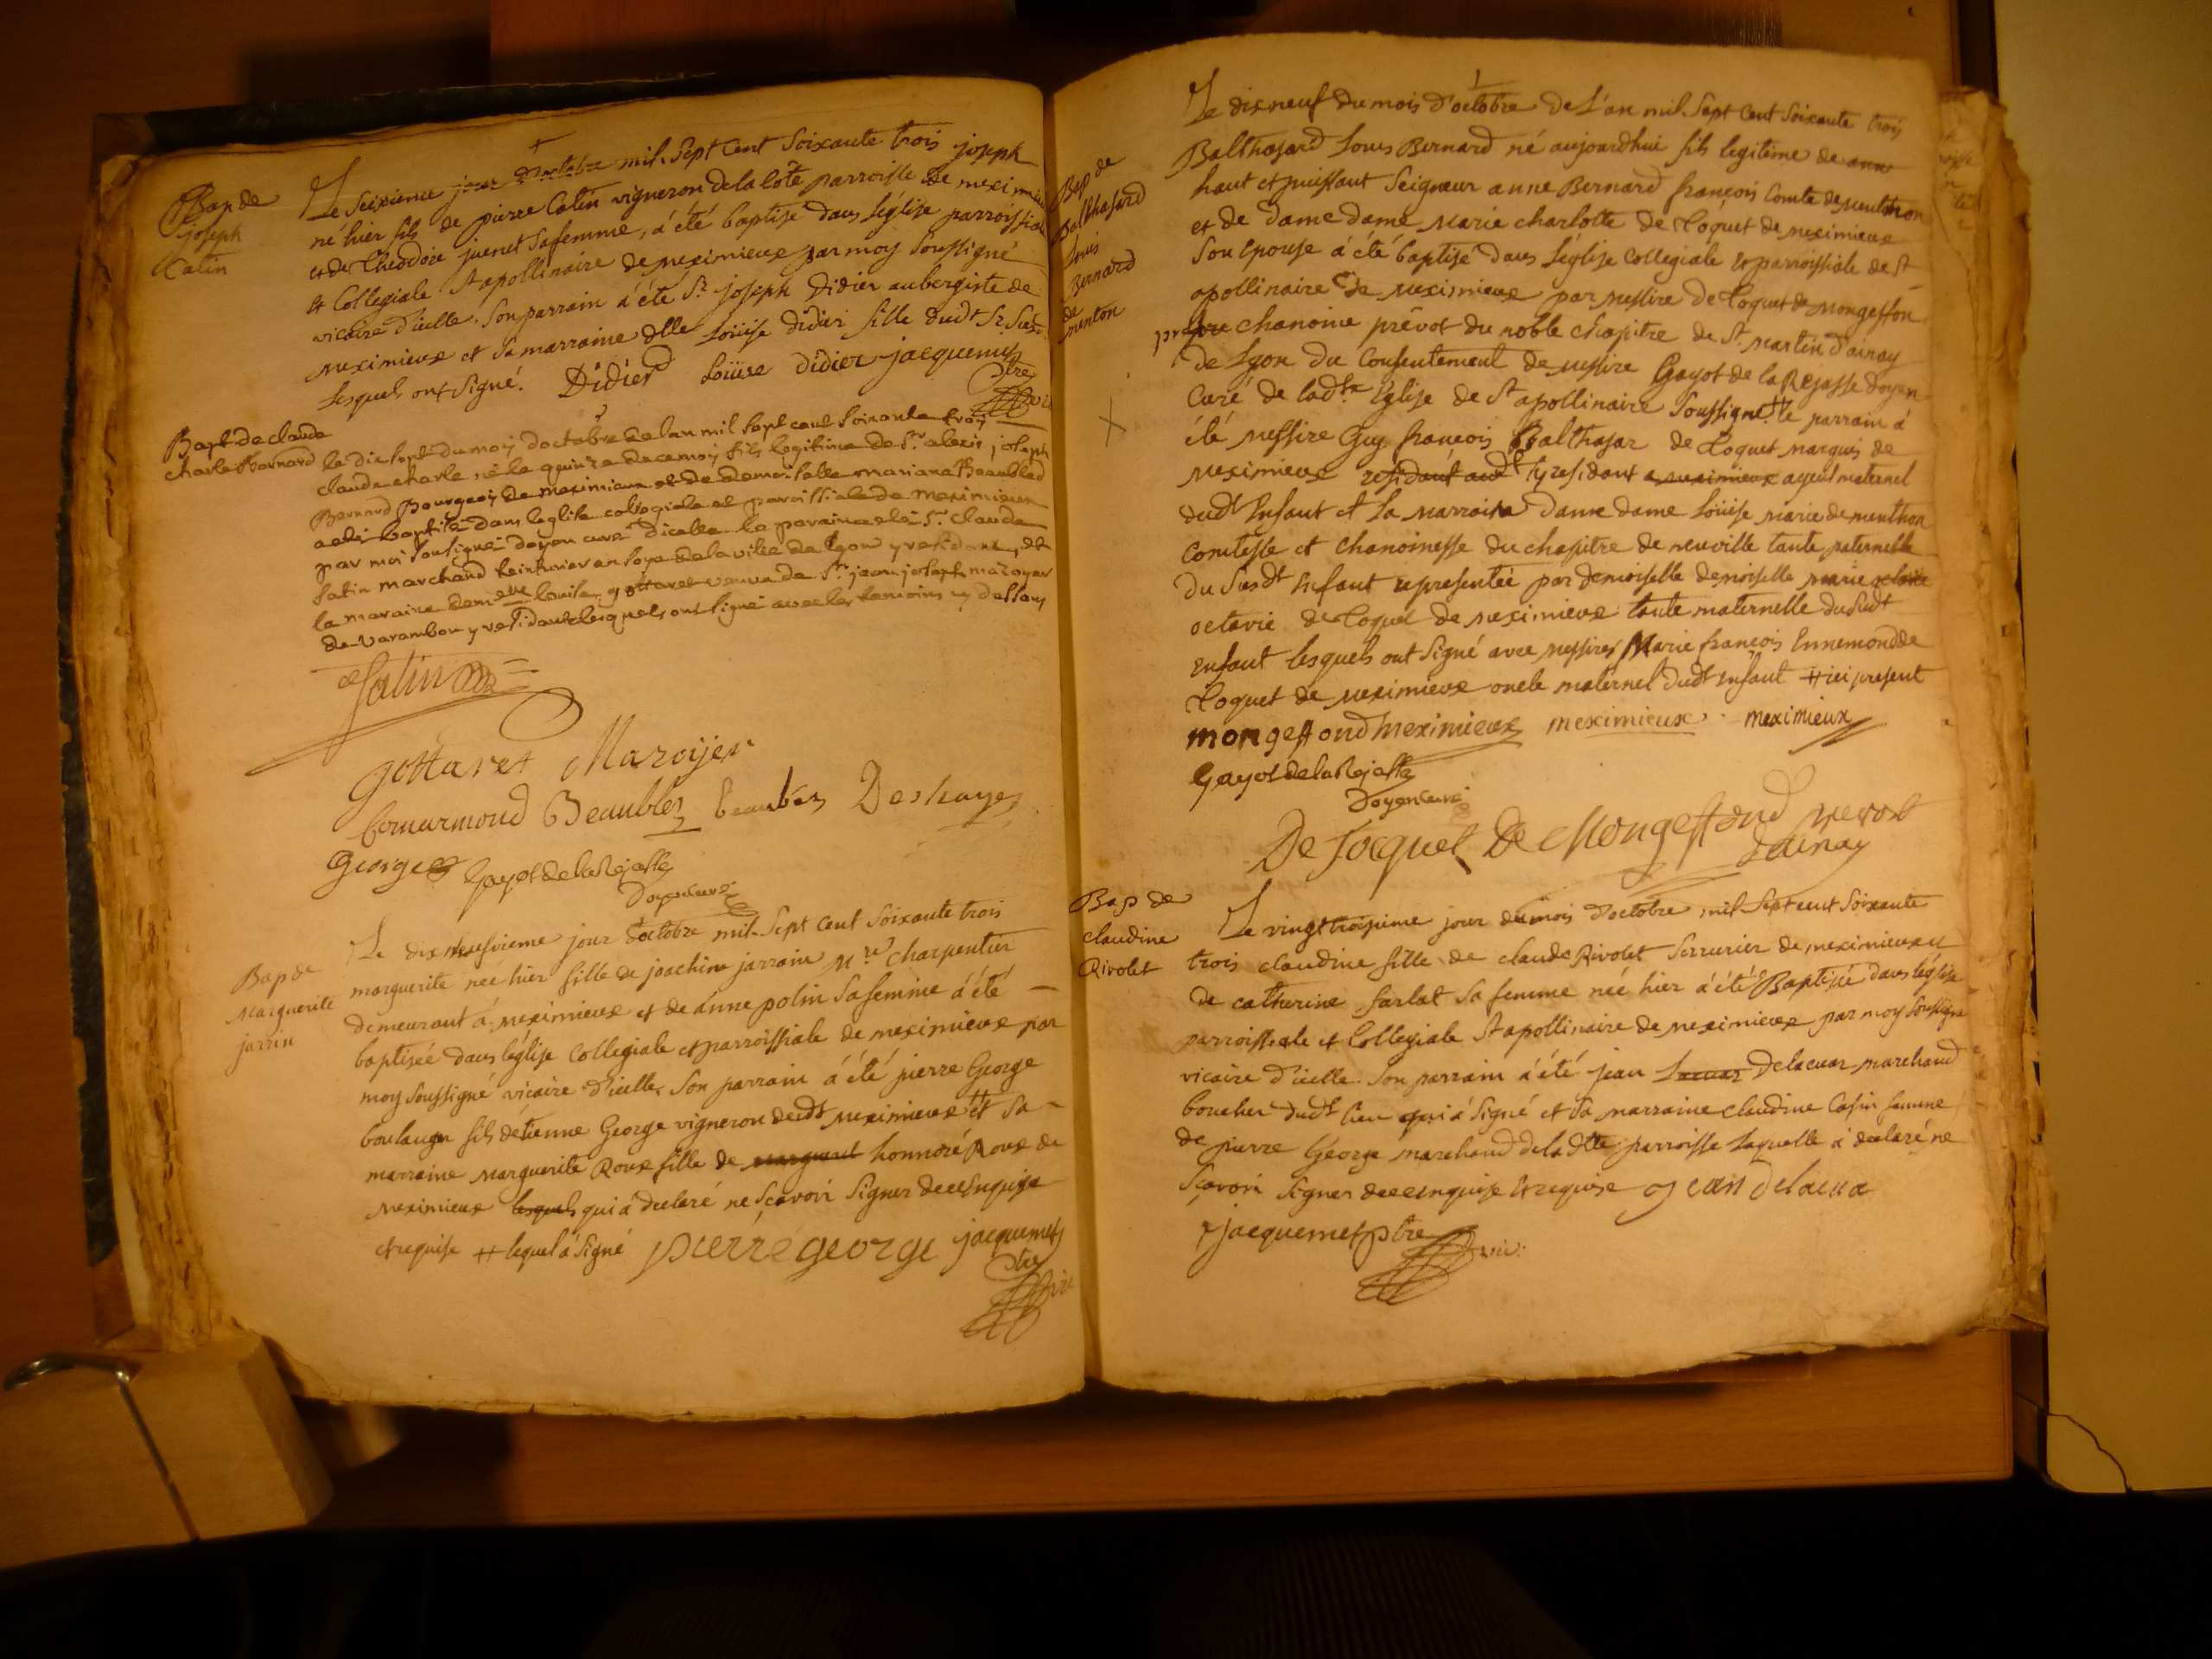 Bap de
joseph
Catin
Le Seixieme jour d'octobre mil Sept Cent Soixante trois joseph
né hier fils de pierre Catin vigneron de la Côte parroisse de meximieux
et de Theodore juenet Sa femme, à été baptisé dans l'église parroissiale
et Collegiale St apollinaire de meximieux par moy Soussigné
vicaire d'icelle. Son parrain à été Sr joseph Didier aubergiste de
meximieux et Sa marraine dlle Loüise didier fille dudt Sr
Lesquels ont Signé. Didier Loüise didier jacquemet
ptre
Bapt de claude
charle Bernard
le dix sept du moy doctobre de lan mil sept cent soixante troy
claude charle né le quinze de ce moy fils legitime de Sr alexis joseph
Bernard Bourgeois de meximieux et de demoiselle mariane Beaublez
a été baptisé dans leglise collegiale et paroissiale de meximieux
par moi soussigné doyen curé dicelle le parain a été Sr claude
Satin marchand teinturier en soye de la ville de Lyon y residant, et
la maraine demelle louise gottaret veuve de Sr jean joseph mazoyer
de varambon y residant lesquels ont signé avec les temoins cy dessous
Satin
gottaret Mazoyer
Beaublez Deshayes
George Gayot de la Rejasse
Doyen curé
Bap de
Marguerite
jarrin
Le dix neufvieme jour d'octobre mil Sept Cent Soixante trois
marguerite née hier fille de joachim jarrain Mre charpentier
demeurant à meximieux et de Anne polin Sa femme à été
baptisée dans l'église Collegiale et parroissiale de meximieux par
moy soussigné vicaire d'icelle. Son parrain à été pierre George
boulanger fils detienne George vigneron dudt meximieux # et Sa
marraine Marguerite Roux fille de honnoré Roux de
meximieux lesquels qui à declaré ne Scavoir Signer de ce enquise
et requise # lequel à Signé pierre george jacquemet
ptre
Bap de
Balthasard
Louis
Bernard
de
menton
Le dixneuf du mois d'octobre de L'an mil Sept Cent Soixante trois
Balthasard Louis Bernard né aujourdhui fils legitime de anne
haut et puissant Seigneur anne Bernard françois Comte de menthon
et de dame dame marie charlotte de Loquet de meximieux
Son Epouse à été baptisé dans L'église Collegiale et parroissiale de St
apollinaire de meximieux par messire de Loquet de mongeffon
chanoine prévot du noble chapitre de St martin d'ainay
de Lyon du Consentement de messire Gayot de la Rejasse doyen
Curé de ladte Eglise de St apollinaire Soussigné # le parrain à
été messire Guy françois Balthasar de Loquet marquis de
meximieux residant audt y residant a meximieux ayeul maternel
dudt Enfant et la marraine Dame dame Loüise marie de menthon
Comtesse et chanoinesse du chapitre de neuville tante paternelle
du Susdt Enfant representée par demoiselle demoiselle marie
octavie de Loquet de meximieux tante maternelle du Sudt
enfant lesquels ont Signé avec messire Marie françois Ennemond de
Loquet de meximieux oncle maternel dudt enfant # ici present
mongeffond meximieux meximieux meximieux
Gayot de la Rejasse
Doyen curé
De Locquet De Mongeffond prevost
d'ainay
Bap de
claudine
Rivolet
Le vingt troisieme jour du mois d'octobre mil Sept cent Soixante
trois claudine fille de claude Rivolet Serrurier de meximieux et
de catherine farlat Sa femme née hier à été Baptisée dans l'église
parroissiale et Collegiale St apollinaire de meximieux par moy Soussigné
vicaire d'icelle. Son parrain à été jean Delacuar marchand
boucher dudt lieu qui à Signé et Sa marraine claudine Cafin femme
de pierre George marchand de la dtte parroisse Laquelle à declaré ne
Scavoir Signer de ce enquise et requise jean delacua
jacquemet ptre
vic.